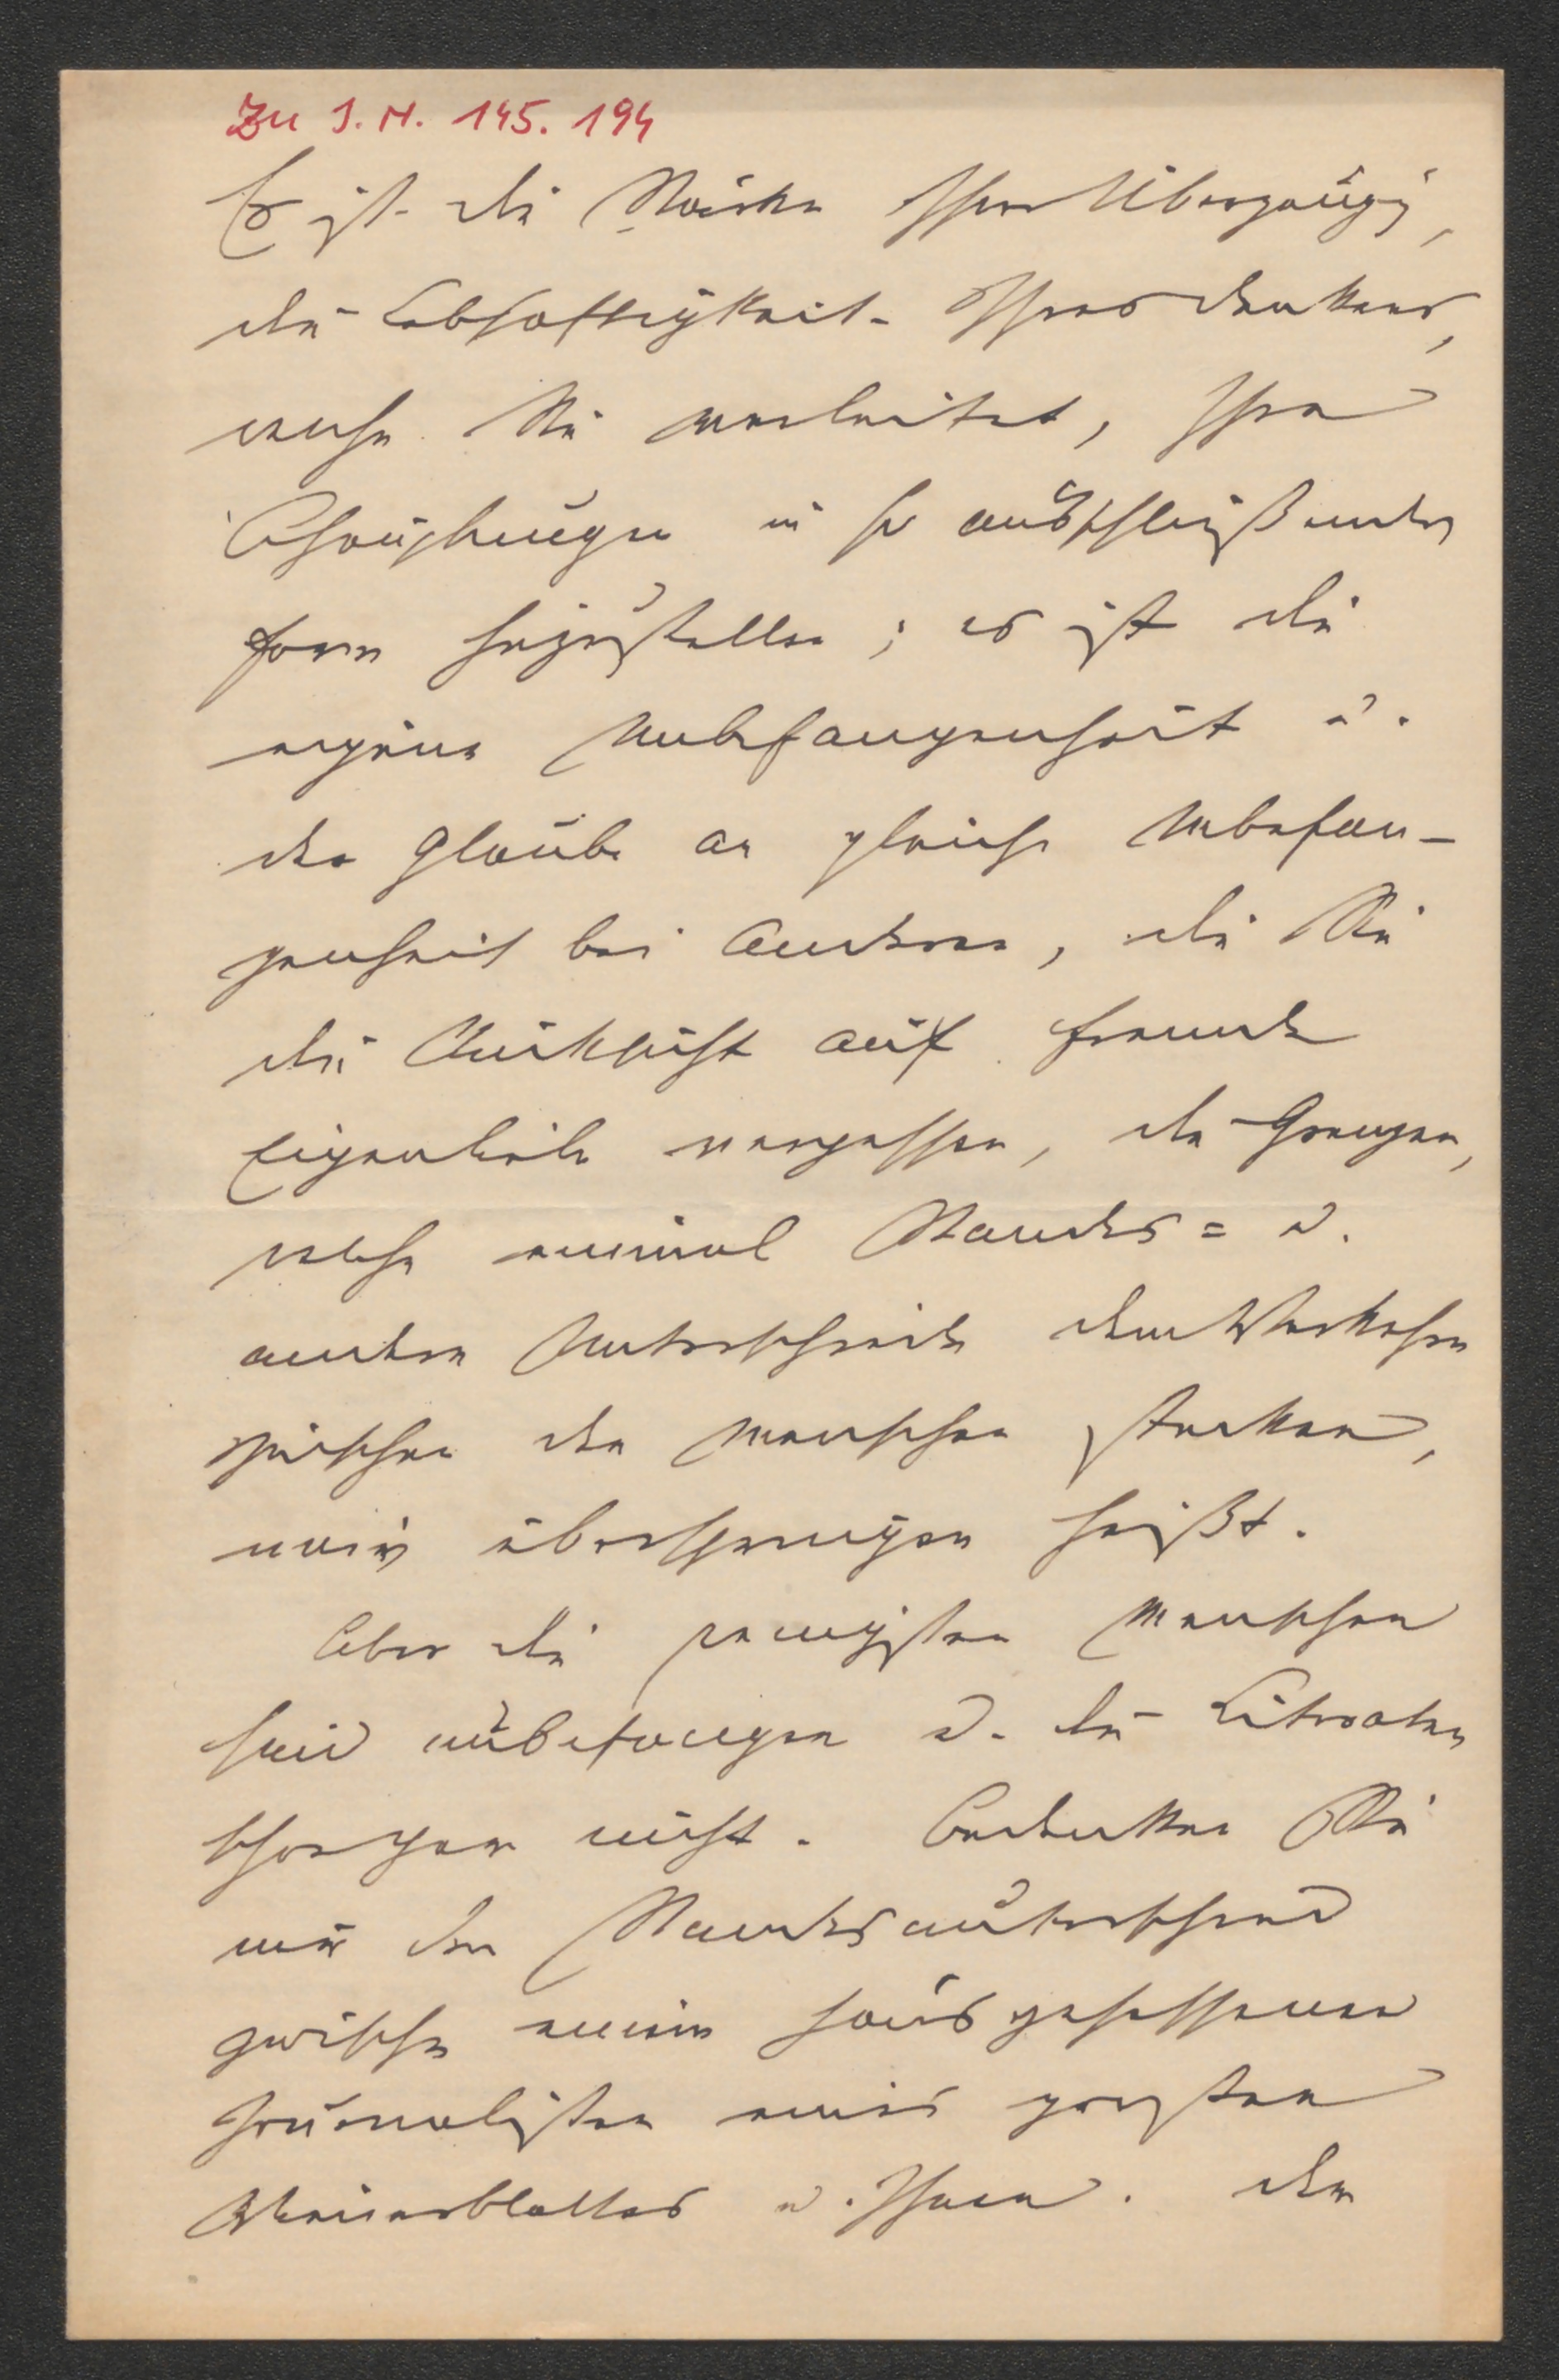 Zu J. N. 145. 194
Es ist die Stärke Ihrer Überzeugg,
die Lebhaftigkeit Ihres Denkens,
welche Sie verleitet, Ihre
Ansch in so ausschließender
Form hinzustellen; es ist die
eigene Unbefangenheit u.
der Glaube an gleiche Unbefan-
genheit bei Anderen, die Sie
die Rücksicht auf fremde
Eigenliebe vergessen, die Grenzen,
welche einmal Standes= u.
andere Unterschiede dem Verkehre
zwischen den Menschen stecken,
naiv überspringen heißt.
Aber die wenigsten Menschen
sind unbefangen u. die Literaten
schon gar nicht. Bedenken Sie
nur den Standesunterschied
zwischen einem hausgesessenen
Journalisten eines großen
Wienerblattes u. Ihnen. Der